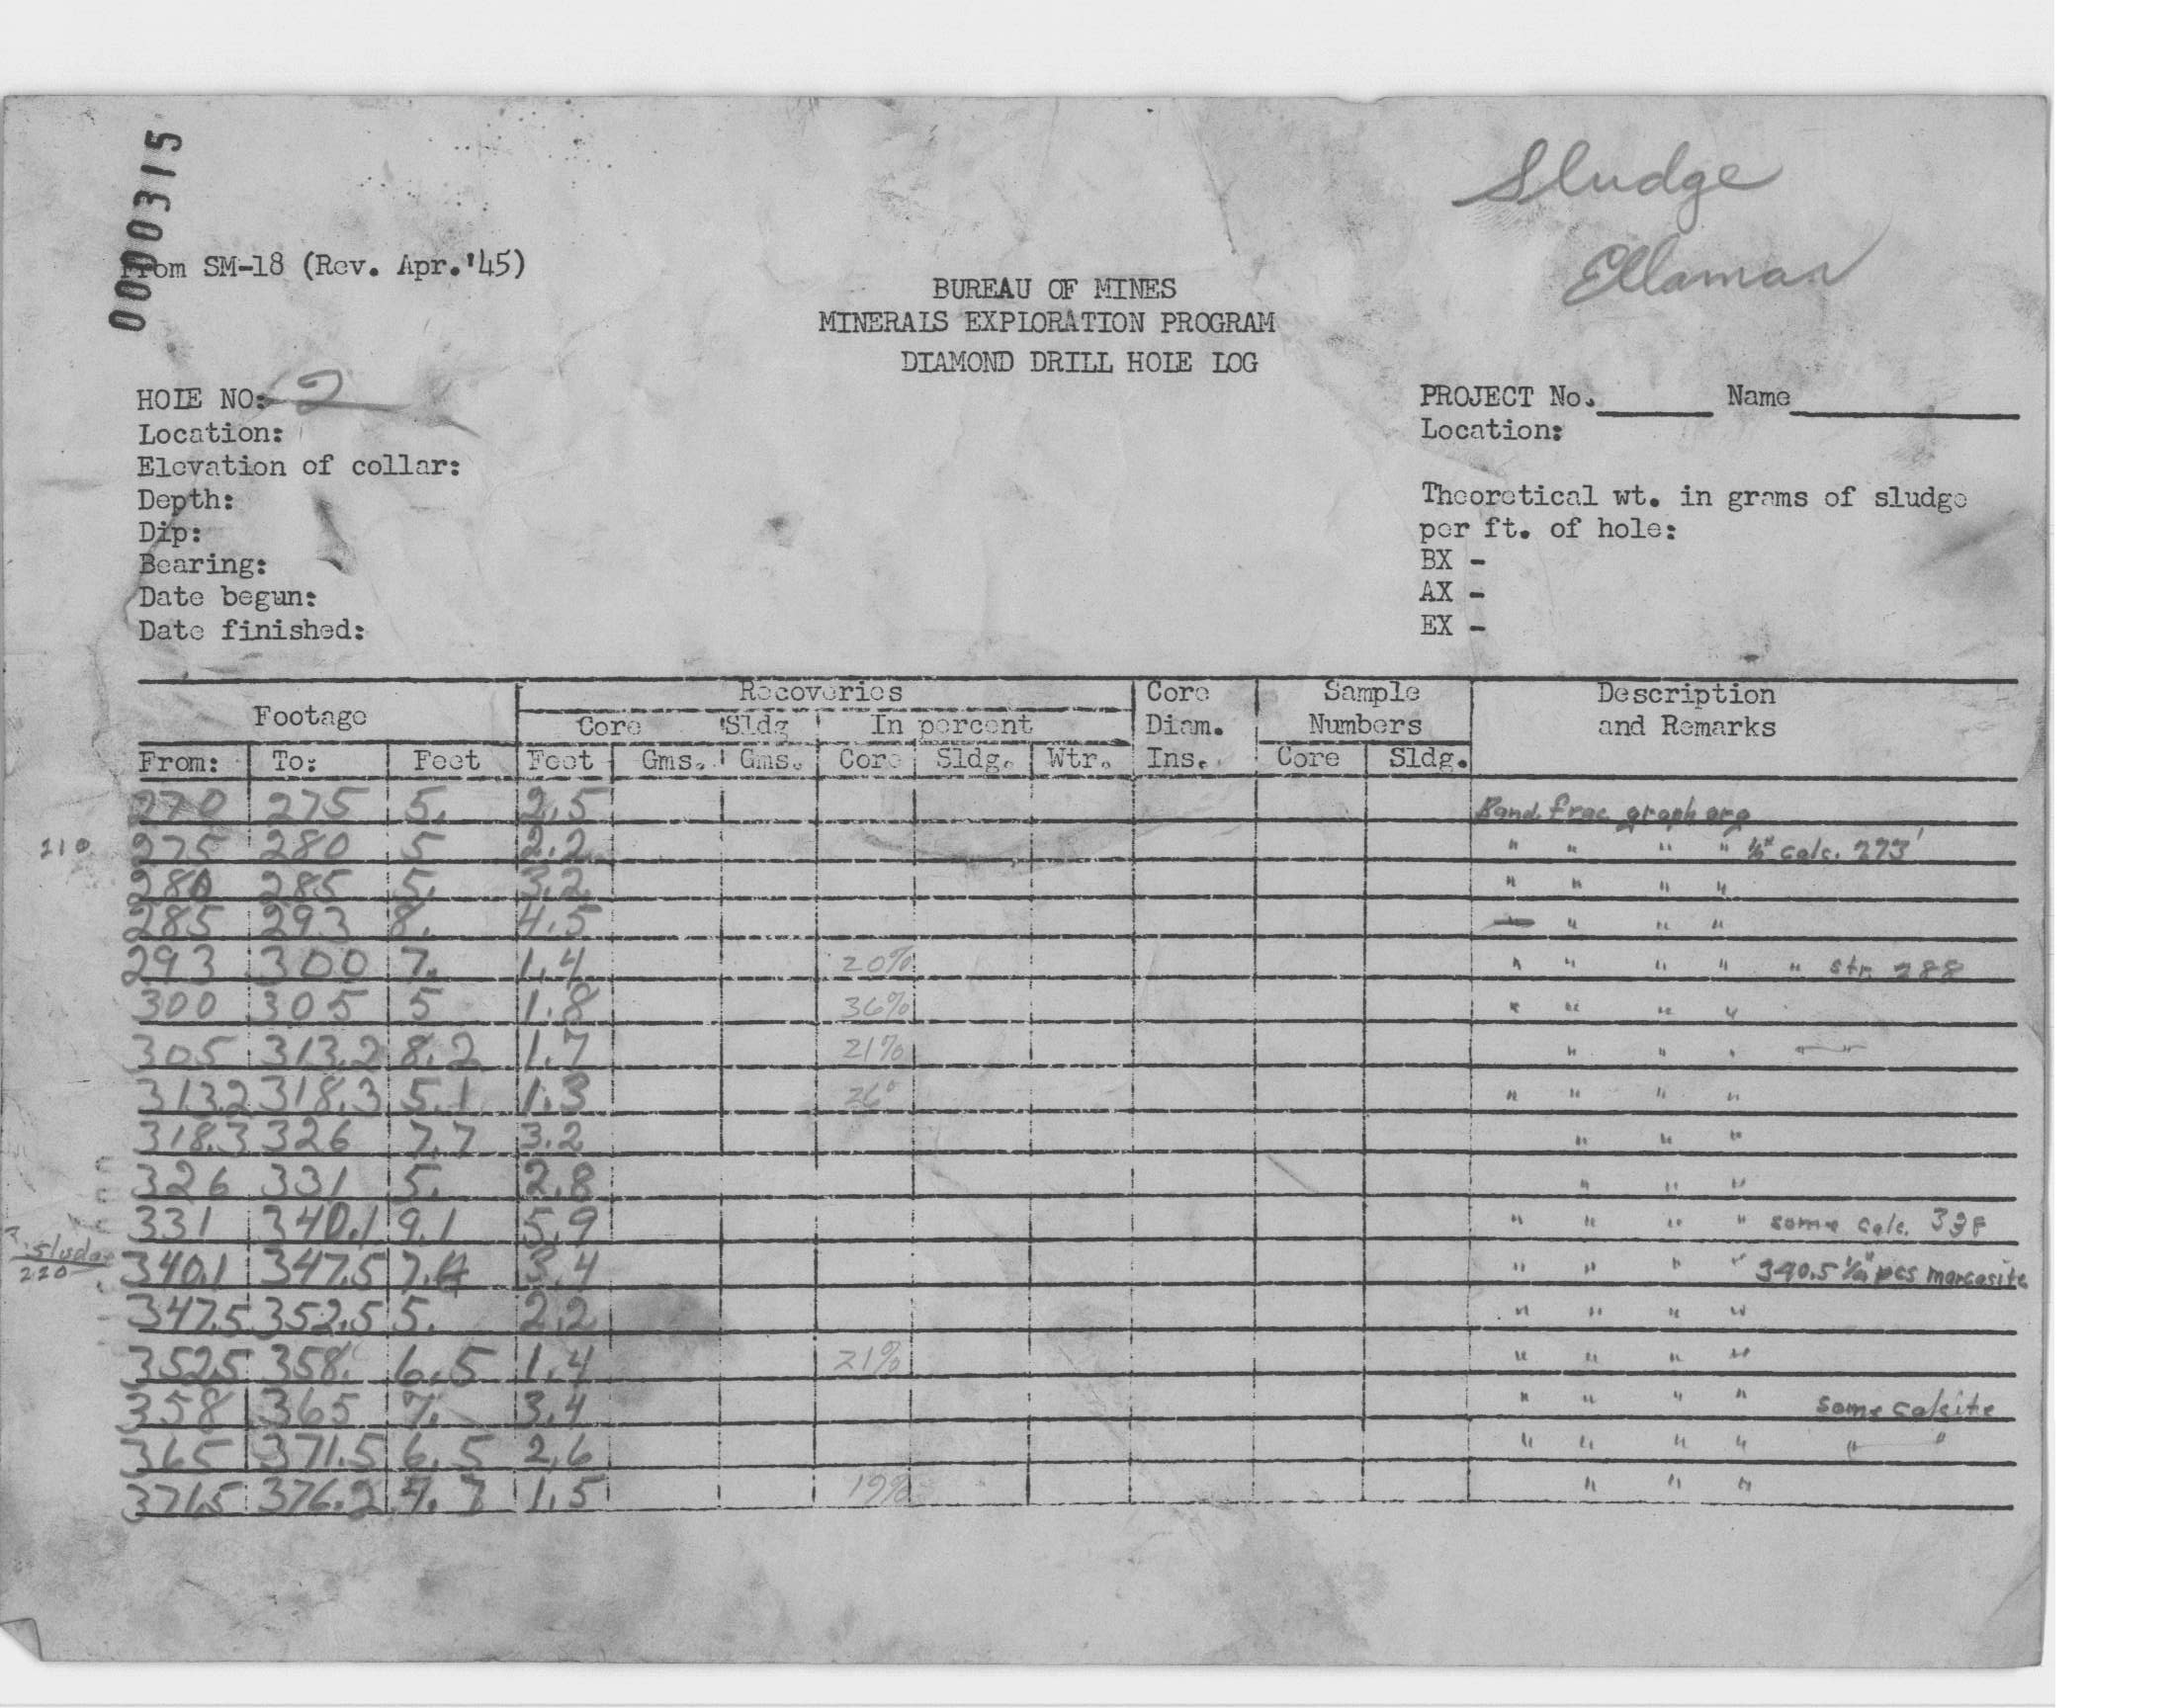 0000315
Sludge
Ellamar
From SM-18 (Rev. Apr.'45)
BUREAU OF MINES
MINERALS EXPLORATION PROGRAM
DIAMOND DRILL HOLE LOG
HOLE NO: 2
PROJECT No. Name
Location:
Location:
Elevation of collar:
Depth:
Theoretical wt. in grams of sludge
Dip:
per ft. of hole:
Bearing:
BX -
Date begun:
AX -
Date finished:
EX -
Recoveries Core Sample Description
Footage Core Sldg In percent Diam. Numbers and Remarks
From: To: Feet Feet Gms. Gms. Core Sldg. Wtr. Ins. Core Sldg.
270 275 5. 2.5 Band. frac graph arg
210 275 280 5 2.2 " " " " 1/2" calc. 273'
280 285 5. 3.2 " " " "
285 293 8. 4.5 " " "
293 300 7. 1.4 20% " " " " " str. 288
300 305 5 1.8 36% " " " "
305 313.2 8.2 1.7 21% " " "
313.2 318.3 5.1 1.3 26° " " " "
318.3 326 7.7 3.2 " " "
326 331 5. 2.8 " " "
331 340.1 9.1 5.9 " " " " some calc. 338
sludge 220 340.1 347.5 7.4 3.4 " " " " 340.5 pcs marcasite
347.5 352.5 5. 2.2 " " " "
352.5 358. 6.5 1.4 21% " " " "
358 365 7. 3.4 " " " " some calcite
365 371.5 6.5 2.6 " " " " " "
371.5 376.2 1.5 19% " " "